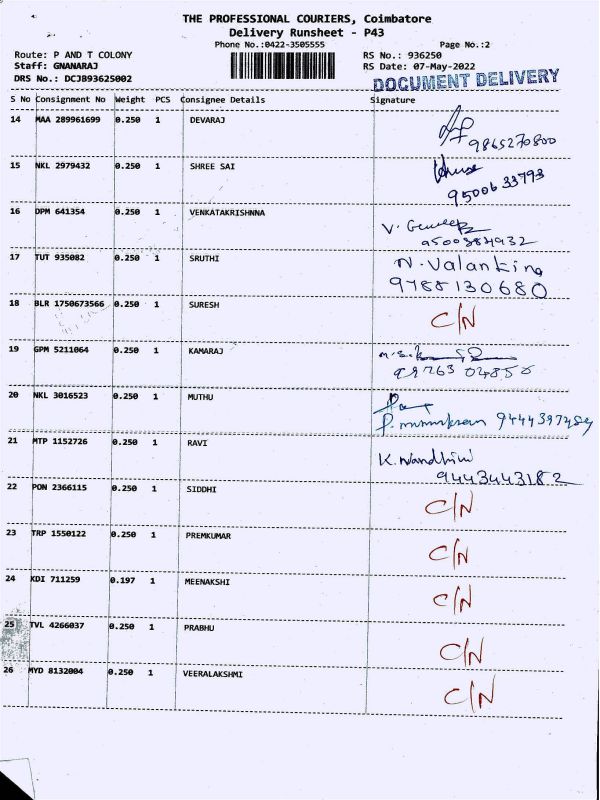 THE PROFESSIONAL COURIERS, Coimbatore
Delivery Runsheet - P43
Phone No.:0422-3505555 Page No.:2
Route: P AND T COLONY RS No.: 936250
Staff: GNANARAJ RS Date: 07-May-2022
DRS No.: DCJB93625002 DOCUMENT DELIVERY
S No Consignment No Weight PCS Consignee Details Signature
14 MAA 289961699 0.250 1 DEVARAJ
9865270800
15 NKL 2979432 0.250 1 SHREE SAI
9500633793
16 DPM 641354 0.250 1 VENKATAKRISHNNA
V.
9500384932
17 TUT 935082 0.250 1 SRUTHI N. Valantina
9788130680
18 BLR 1750673566 0.250 1 SURESH C/N
19 GPM 5211064 0.250 1 KAMARAJ
99763 04850
20 NKL 3016523 0.250 1 MUTHU
21 MTP 1152726 0.250 1 RAVI K. Nandhini
9443443182
22 PON 2366115 0.250 1 SIDDHI C/N
23 TRP 1550122 0.250 1 PREMKUMAR C/N
24 KDI 711259 0.197 1 MEENAKSHI C/N
25 TVL 4266037 0.250 1 PRABHU C/N
26 MYD 8132004 0.250 1 VEERALAKSHMI C/N